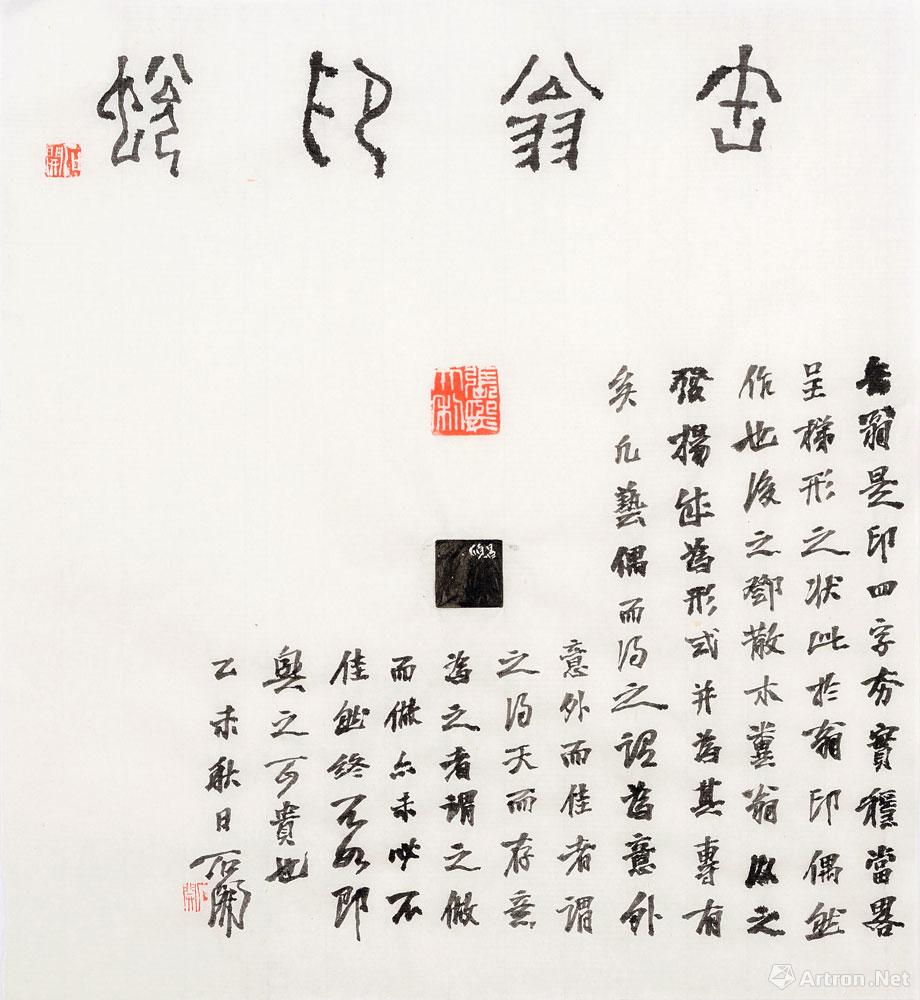 缶翁印蛻
石開
張熙大利
缶翁是印四字夯實穩當畧
呈梯形之狀此於翁印偶然
作也後之鄧散木糞翁以之
發揚成為形式并為其專有
矣凡藝偶而得之謂為意外
意外而佳者謂
之得天而存意
為之者謂之倣
而倣亦未必不
佳然終不如即
興之可貴也
乙未秋日石開
石開
Artron.Net